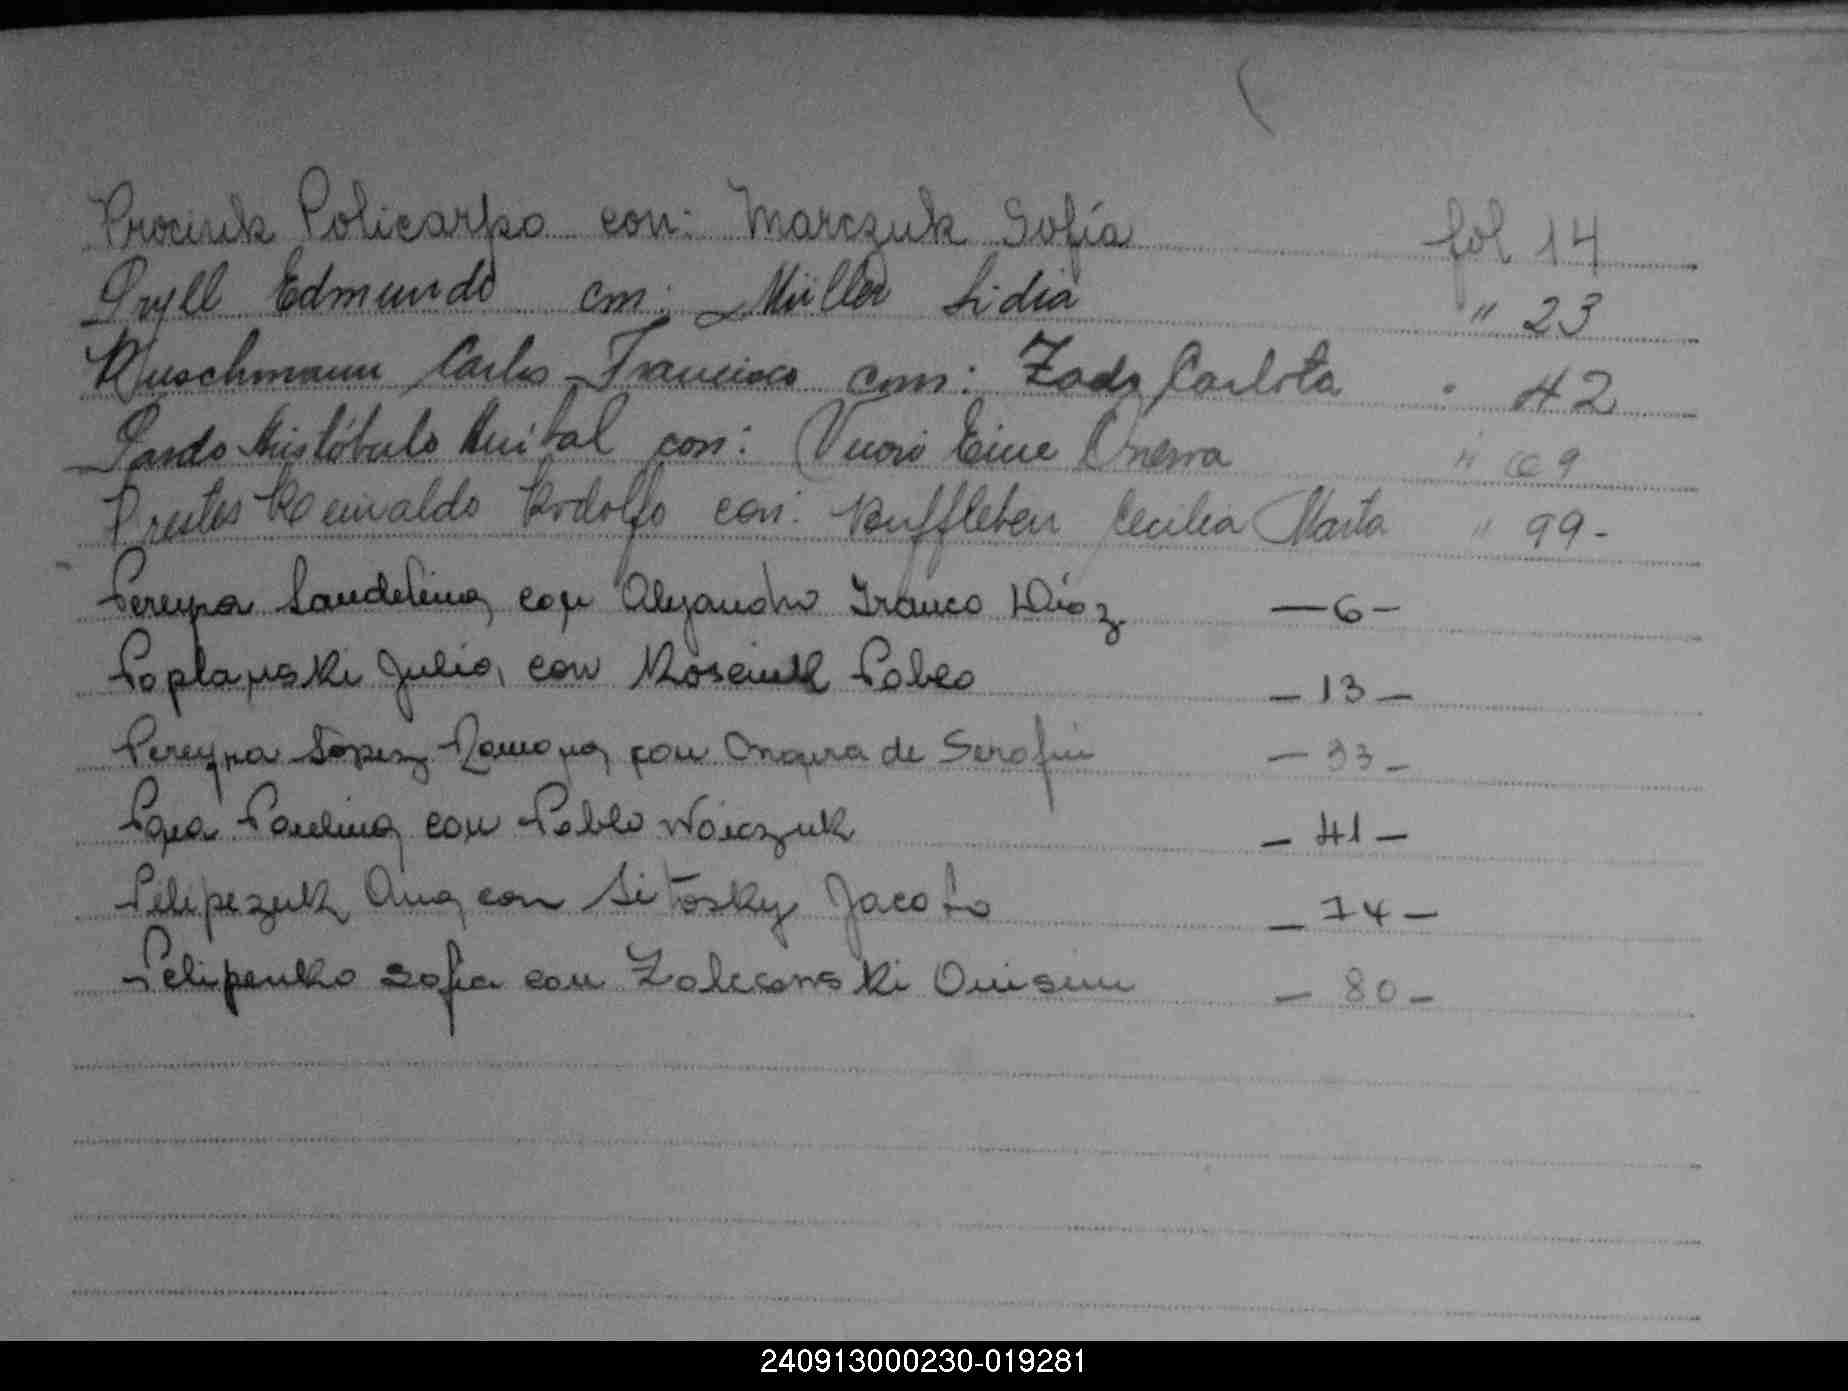 Prociuk Policarpo con: Marczuk Sofía fol 14
Pryll Edmundo con: Müller Lidia " 23
Puschmann Carlos Francisco con: Carlota " 42
Pardo Aristóbulo Anibal con: Vuori Eine " 69
Prestes Reinaldo Rodolfo con: Cecilia Marta " 99-
Pereyra Laudelina, con Alejandro Franco Díaz —6—
Poplawski Julia, con Kosciuk Pablo —13—
Pereyra López Ramona, con de Serafin —33—
Paulina con Pablo Woiczuk —41—
Pelipczuk Ana, con Sitosky Jacobo —74—
Pelipenko Sofia con Onisim —80—
240913000230-019281